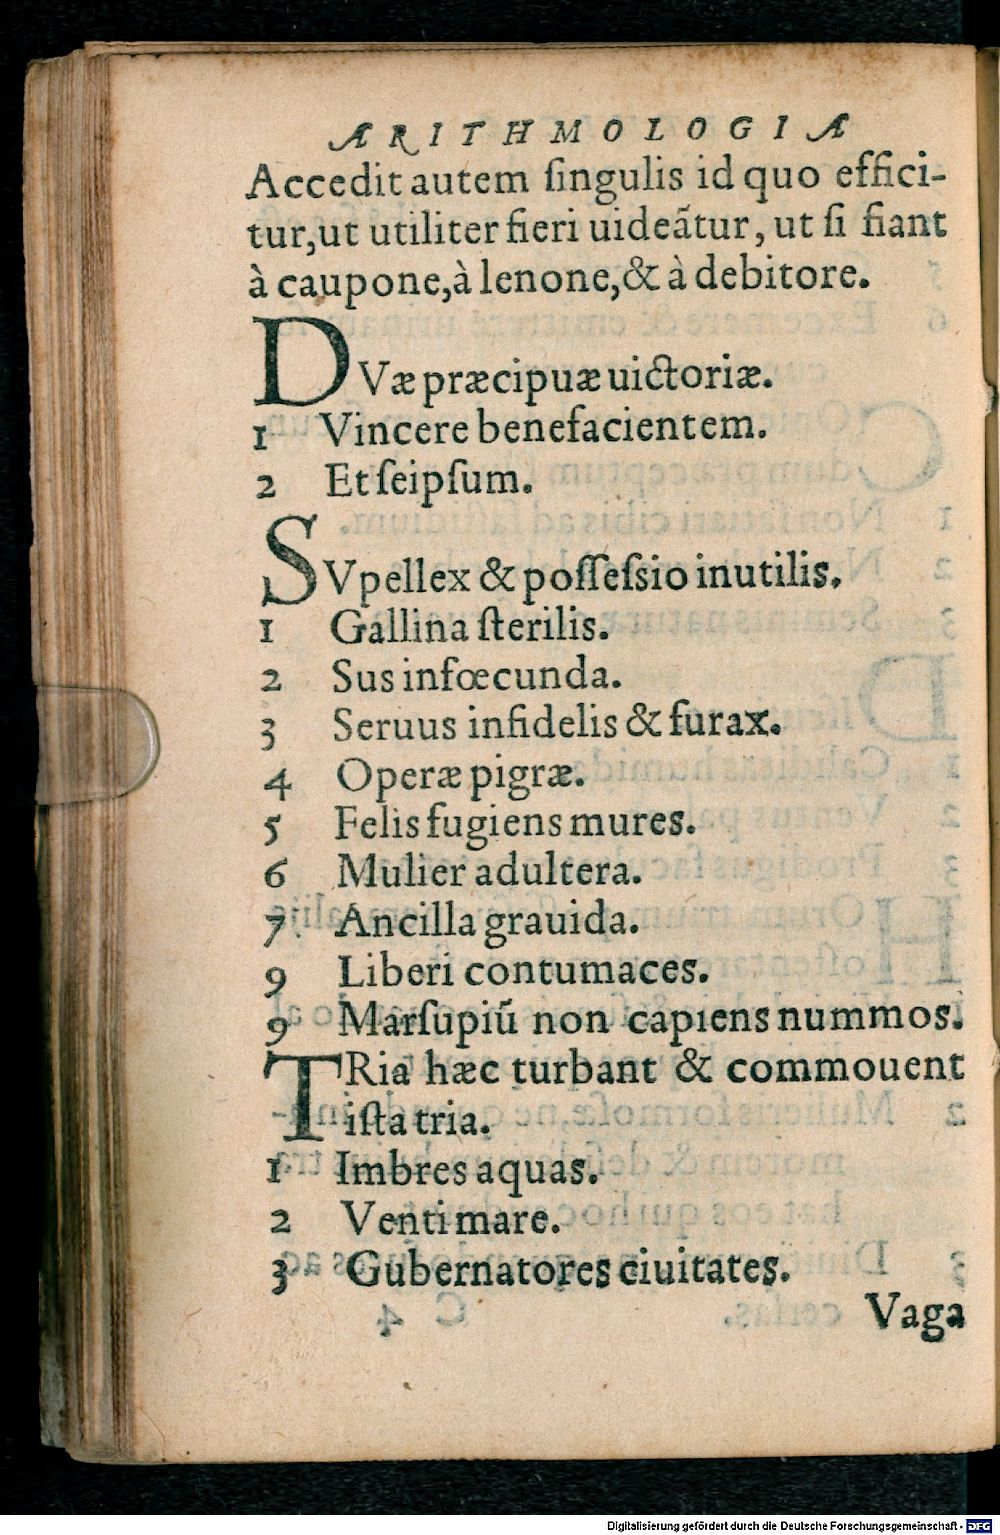 ARITHMOLOGIA
Accedit autem ſingulis id quo effici-
tur,ut utiliter fieri uideãtur, ut ſi fiant
à caupone,à lenone,& à debitore.
DVæ præcipuæ uictoriæ.
1 Vincere benefacientem.
2 Et ſeipſum.
SVpellex & poſſeſsio inutilis.
1 Gallina ſterilis.
2 Sus infœcunda.
3 Seruus infidelis & furax.
4 Operæ pigræ.
5 Felis fugiens mures.
6 Mulier adultera.
7 Ancilla grauida.
9 Liberi contumaces.
9 Marſupiũ non capiens nummos.
TRia hæc turbant & commouent
iſta tria.
1 Imbres aquas.
2 Venti mare.
3 Gubernatores ciuitates.
Vaga
Digitalisierung gefördert durch die Deutsche Forschungsgemeinschaft - DFG